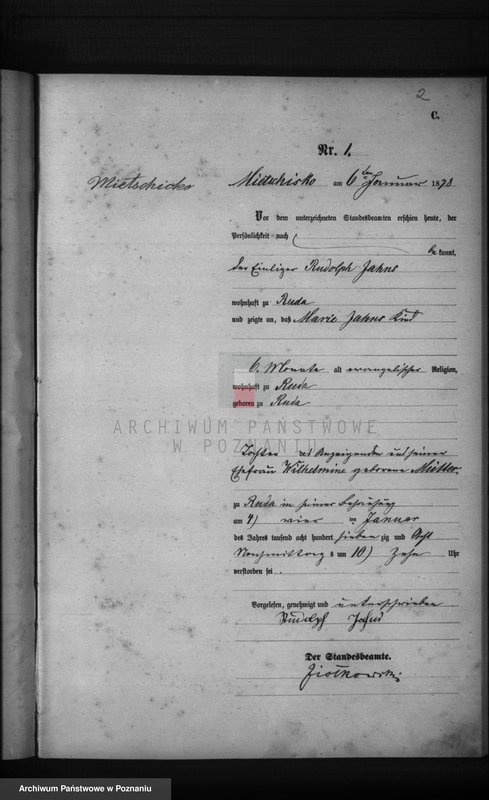 2
C.
Nr. 1.
Mietschisko
Mietschisko am 6 ten Januar 1878
Vor dem unterzeichneten Standesbeamten erschien heute, der
Persönlichkeit nach
be kannt,
der Einlieger Rudolph Jahns
wohnhaft zu Ruda
und zeigte an, daß Marie Jahns Kind
6. Monate alt evangelischer Religion,
wohnhaft zu Ruda
geboren zu Ruda
ARCHIWUM PAŃSTWOWE
W POZNANIU
Tochter des Anzeigenden und seiner
Ehefrau Wilhelmine geborene
zu Ruda in seiner Behausung
am 4) vier ten Januar
des Jahres tausend acht hundert sieben zig und Acht
Nachmittags um 10) Zehn Uhr
verstorben sei.
Vorgelesen, genehmigt und unterschrieben
Rudolph Jahns
Der Standesbeamte.
Ziółkowski
Archiwum Państwowe w Poznaniu